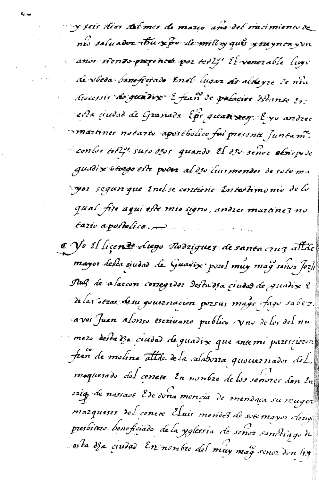 y seis dias del mes de março año del nacimiento de
nro saluador ihu xpo de mill y quis y treynta y un
años siendo presentes por testigos El venerable luys
de ubeda beneficiado En el lugar de aldeyre de nra
diocesis de guadix E franco de palacios estante en
esta ciudad de Granada E yo andres
martinez notario apostholico fui presente Juntamte
con los tos suso dhos quando El dho señor obispo de
guadix otorgo este poder al dho luis mendes de soto ma
yor segun que En el se contiene En testimonio de lo
qual fize aqui este mio signo, andres martinez no
tario apostolico.
Yo El licendo diego Rodriguez de santa cruz allde
mayor desta ciudad de Guadix por el muy mago señor
Ruiz de alarcon corregidor desta dha ciudad de guadix E
de las otras de su gouernacion por sus mages hago saber
a vos Juan alonso escriuano publico uno de los del nu
mero desta dha ciudad de guadix que ante mi parescieron
franco de molina allde de la calahorra gouernador del
marquesado del cenete En nombre de los señores don En
rrique de nassao E doña mencia de mendoça su muger
marqueses del cenete E luis mendes de soto mayor clerigo
presbitero beneficiado de la yglesia de señor santhiago de
esta dha ciudad En nombre del muy mago señor don